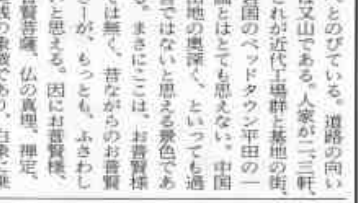 、とのびている。道路の向い
は又山である。人家が二、三軒、
これが近代工場群と基地の街、
岩国のベッドタウン平田の一
画とはとても思えない。中国
山地の奥深く、といっても過
言ではないと思える景色であ
る。まさにここは、お普賢様
では無く、昔ながらのお普賢
さ が、もっとも、ふさわし
いと思える。因にお普賢様、
普賢菩薩、仏の真理、禅定、
の象徴であり、白象に乗